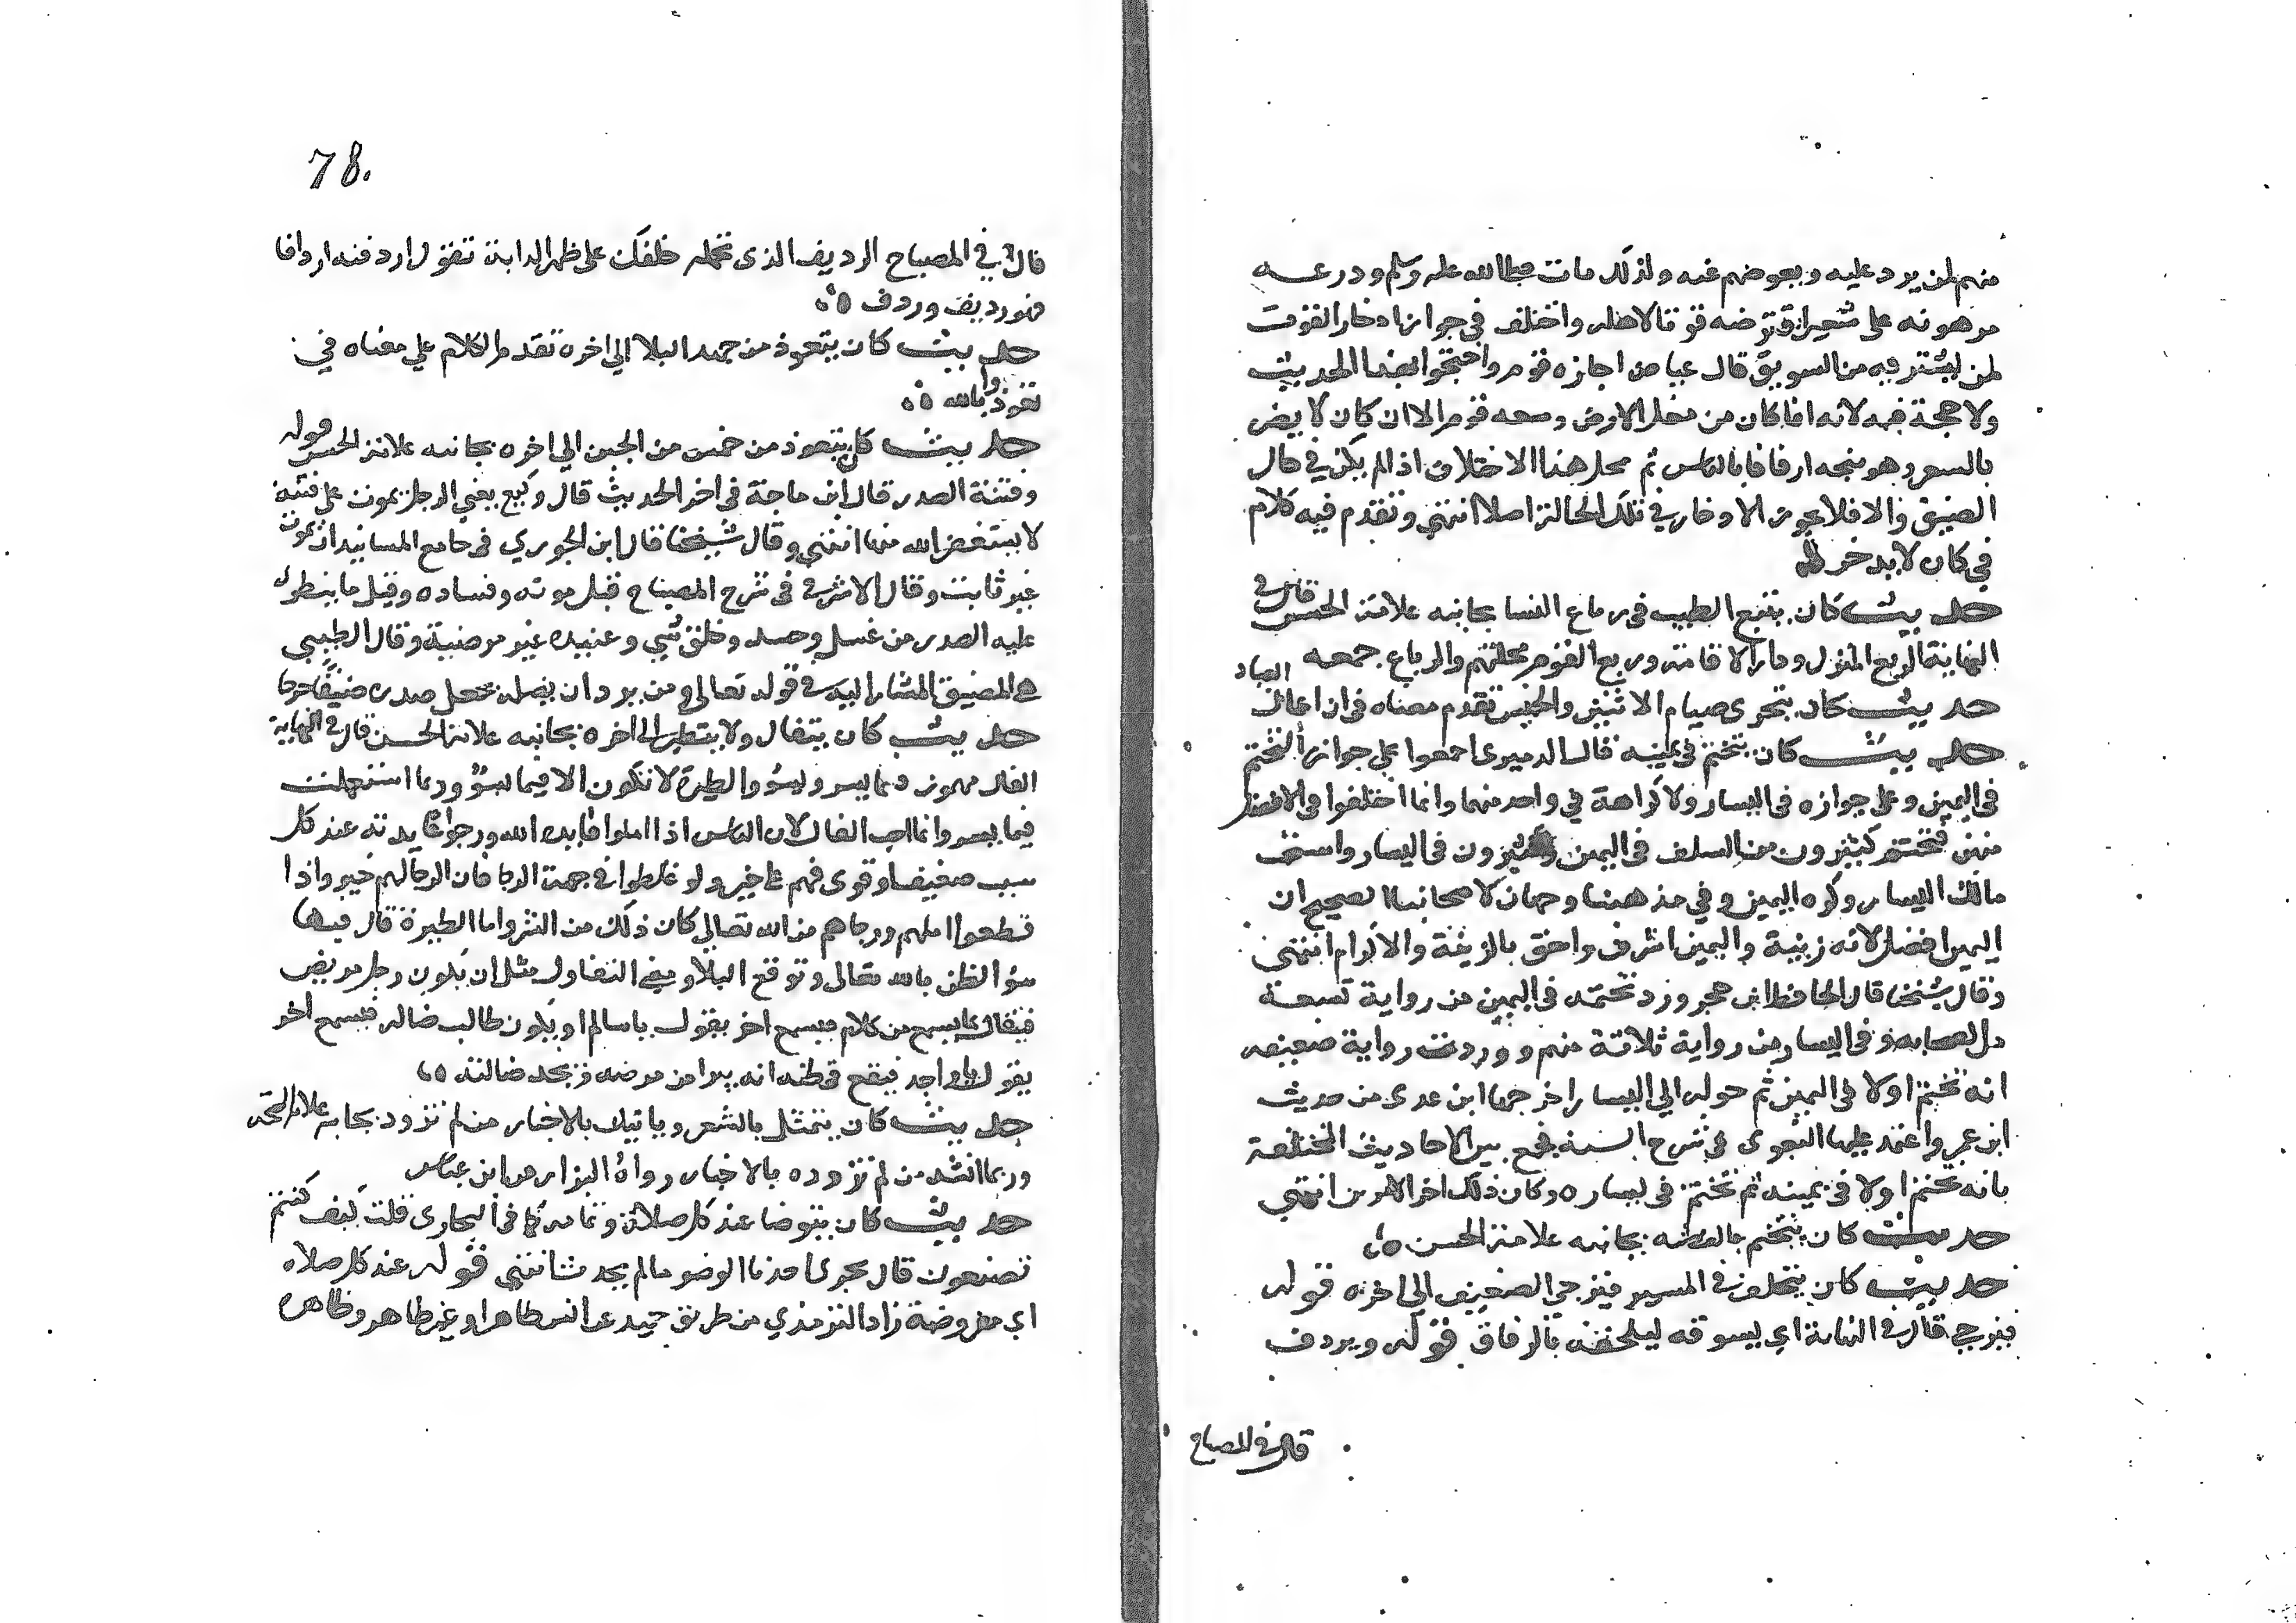 منهم لمن يرد عليه وبعوضهم عنه ولذلك مات صلى الله عليه وسلم ودرعه
مرهونه على شعير اقترضه قوتا لاهله واختلف في جواز ادخار القوت
لمن يشتريه من السوق قال عياض اجازه قوم واحتجوا بهذا الحديث
ولا حجة فيه لانه انما كان من مغل الارض ومنعه قوم الا ان كان لا يضر
بالسعر وهو متجه ارفاقا بالناس ثم محل هذا الاختلاف اذا لم يكن في حال
الضيق والا فلا يجوز الادخار في تلك الحالة اصلا انتهى وتقدم فيه كلام
في كان لا يدخر
حديث كان يتتبع الطيب في رباع النسا بجانبه علامة الحسن قال في
النهاية الربع المنزل ودار الاقامة وربع القوم محلتهم والرباع جمعه
حديث كان يتحرى صيام الاثنين والخميس تقدم معناه في ان اعمال العباد
حديث كان يتختم في يمينه قال الدميرى اجمعوا على جواز التختم
في اليمين وعلى جوازه في اليسار ولا كراهة في واحد منهما وانما اختلفوا في الافضل
منهن فتختم كثيرون من السلف في اليمين وكثيرون في اليسار واستحب
مالك اليسار وكره اليمين وفي مذهبنا وجهان لاصحابنا الصحيح ان
اليمين افضل لانه زينة واليمين اشرف واحق بالزينة والاكرام انتهى
وقال شيخنا قال الحافظ ابن حجر ورد تختمه في اليمين من رواية تسعة
من الصحابه وفي اليسار من رواية ثلاثة منهم ووردت رواية ضعيفه
انه تختم اولا في اليمين ثم حوله الي اليسار اخرجها ابن عدى من حديث
ابن عمر واعتمد عليها البغوى في شرح السنه فجمع بين الاحاديث المختلفة
بانه تختم اولا في يمينه ثم تختم في يساره وكان ذلك اخر الامرين انتهى
حديث كان يتختم بالفضه بجانبه علامة الحسن
حديث كان يتخلف في المسير فيزجي الضعيف الي اخره قوله
فيزجي قال في النهاية اي يسوقه ليلحقه بالرفاق قوله ويردف
قال في المصباح
78.
قال في المصباح الرديف الذى تحمله خلفك على ظهر الدابة تقول اردفته اردافا
فهو رديف وردف
حديث كان يتعوذ من جهد البلا الي اخره تقدم الكلام علي معناه في
تعوذوا بالله
حديث كان يتعوذ من خمس من الجبن الي اخره بجانبه علامة الحسن قوله
وفتنة الصدر قال ابن ماجة في اخر الحديث قال وكيع يعني الرجل يموت على فتنة
لا يستغفر الله منها انتهى وقال شيخنا قال ابن الجوزي في جامع المسانيد ان يموت
غير ثابت وقال الاشرفي في شرح المصباح قيل موته وفساده وقيل ما ينطوى
عليه الصدر من غل وحسد وخلق سي وعقيدة غير مرضية وقال الطيبي
هي الضيق المشار اليه في قوله تعالى ومن يرد ان يضله يجعل صدره ضيقا حرجا
حديث كان يتفال ولا يتطير الى اخره بجانبه علامة الحسن قال في النهاية
الفال مهموز فيما يسر ويسؤ والطيرة لا تكون الا فيما يسؤ وربما استعملت
فيما يسر وانما احب الفال لان الناس اذا املوا فايدة الله ورجوا عايدته عند كل
سبب ضعيف او قوى فهم على خير ولو غلطوا في جهة الرجا فان الرجا لهم خير واذا
قطعوا املهم ورجاهم من الله تعالى كان ذلك من الشر واما الطيرة فان فيها
سؤ الظن بالله تعالى وتوقع البلا ومعنى التفاول مثل ان يكون رجل مريض
فيتفال بما يسمع من كلام فيسمع اخر يقول يا سالم او يكون طالب ضاله فيسمع اخر
يقول يا واجد فيقع في ظنه انه يبرا من مرضه ويجد ضالته
حديث كان يتمثل بالشعر وياتيك بالاخبار من لم تزود بجانبه علامة الصحه
وربما انشد من لم تزوده بالاخبار رواه البزار عن ابن عباس
حديث كان يتوضا عند كل صلاة وتمامه كما في البخارى قلت كيف كنتم
تصنعون قال يجزى احدنا الوضو ما لم يحدث انتهى قوله عند كل صلاه
اي مفروضة زاد الترمذي من طريق حميد عن انس طاهرا وغير طاهر وظاهره